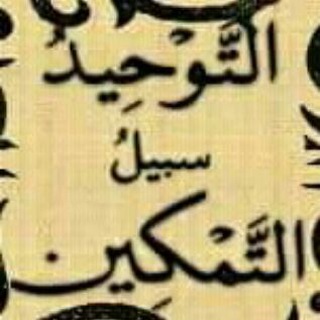 التَّوْحِيدُ
سبيلُ
التَّمْكِين